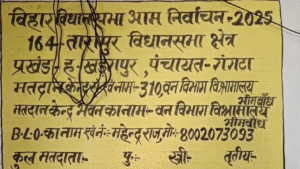 बिहार विधानसभा आम निर्वाचन-2025
164-तारापुर विधानसभा क्षेत्र
प्रखंड-ह॰खड़गपुर, पंचायत-गंगटा
मतदान केन्द्र सं॰ एवं नाम-310, वन विभाग विश्रामालय भीमबाँध
मतदान केन्द्र भवन का नाम-वन विभाग विश्रामालय भीमबाँध
B.L.O का नाम एवं नं॰-महेन्द्र राजु मो॰-8002073093
कुल मतदाता:- पु॰- स्त्री:- तृतीय:-